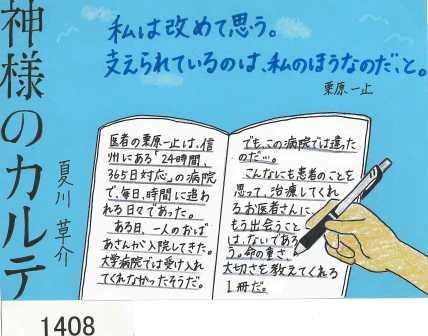 神様のカルテ
夏川 草介
私は改めて思う。
支えられているのは、私のほうなのだ、と。
栗原 一止
医者の栗原一止は、信
州にある「24時間、
365日対応」の病院
で、毎日、時間に追わ
れる日々であった。
ある日、一人のおば
あさんが入院してきた。
大学病院では受け入れ
てくれなかったそうだ。
でも、この病院では違った
のだ…。
こんなにも患者のことを
思って、治療してくれ
る、お医者さんに
もう出会うこと
は、ないであろ
う。命の重さ、
大切さを教えてくれる
1冊だ。
1408